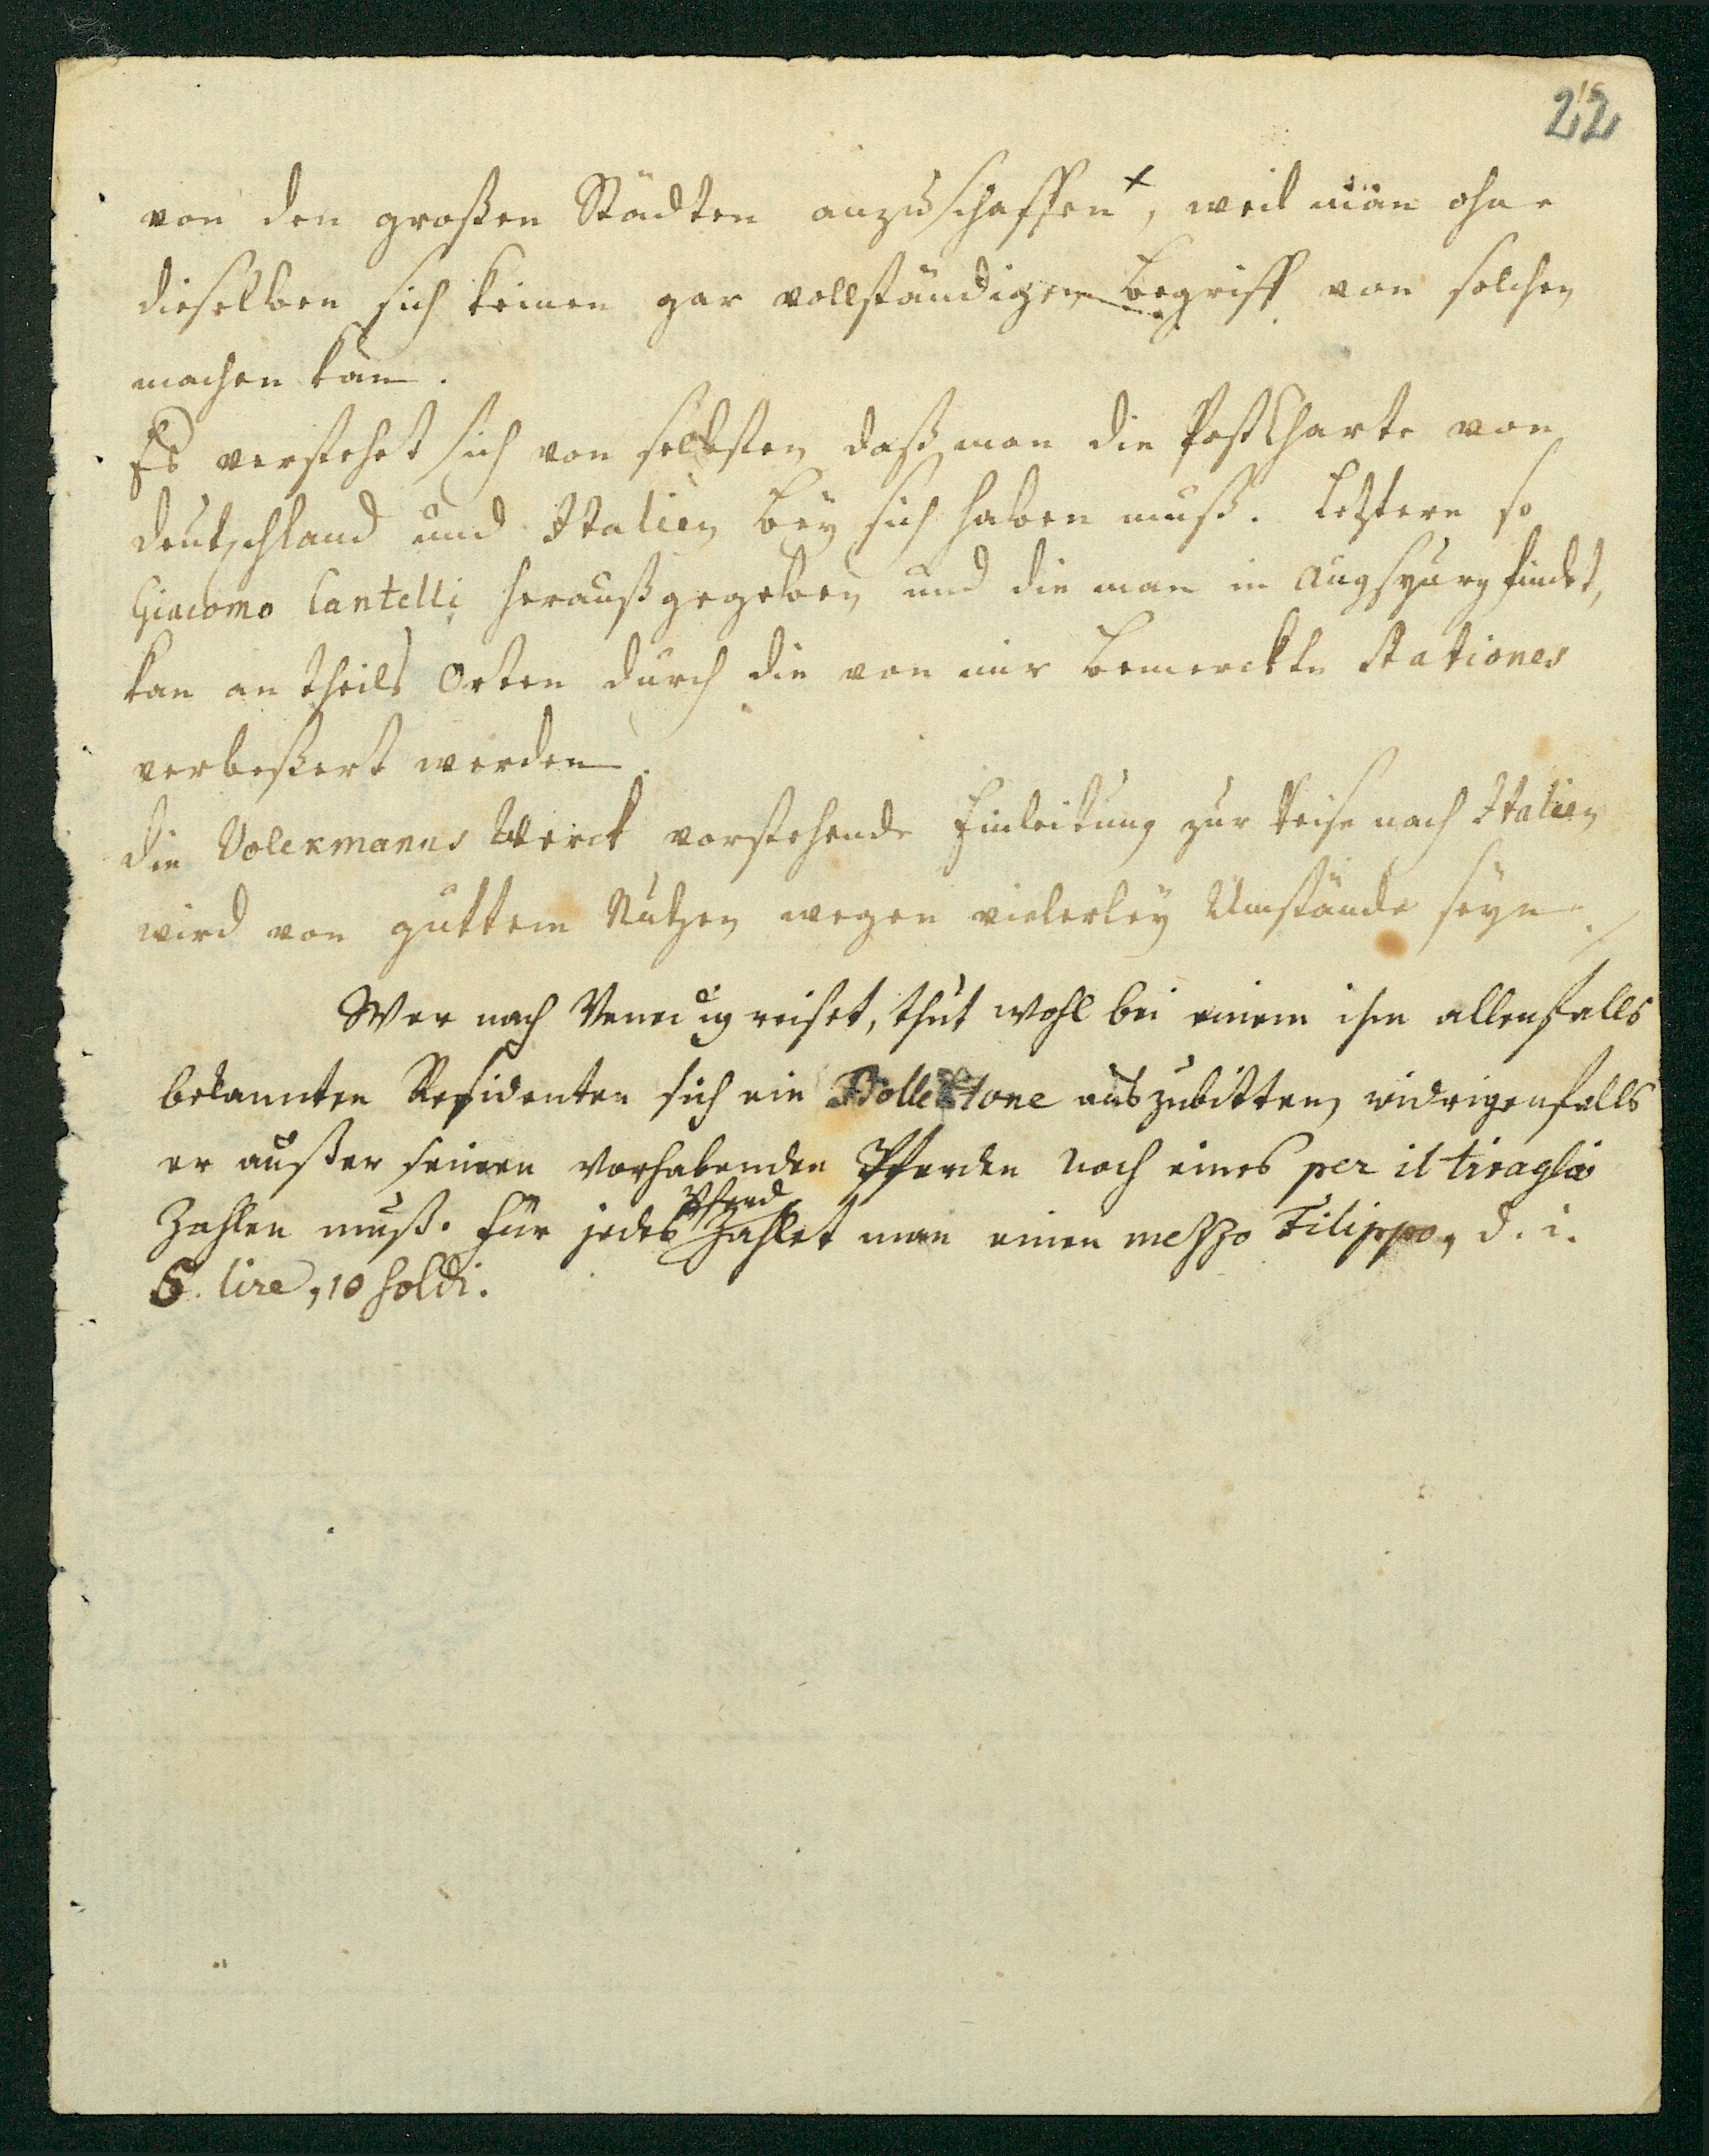 22
von den großen Städten anzuschaffen +, weil man ohne
dieselben sich keinen gar vollständigen Begriff von solchen
machen kan.
Es verstehet sich von selbsten daß man die PostCharte von
Deutschland und Italien beÿ sich haben muß. Letztere so
Giacomo Cantelli heraußgegeben und die man in Augspurg findet,
kan an theils Orten durch die von mir bemerckte Stationes
verbeßert werden.
die Volckmanns Werck vorstehende Einleitung zur Reise nach Italien
wird von guttem Nutzen wegen vielerleÿ Umstände seÿn.
Wer nach Venedig reiset, thut wohl bei einem ihm allenfalls
bekannten Residenten sich ein Bolletone auszubitten, widrigenfalls
er außer seinen vorhabenden Pferden noch eines per il tiraglio
Zahlen muß. Für jedes Pferd Zahlet man einen mezzo Filippo, d. i.
5. lire, 10 soldi.